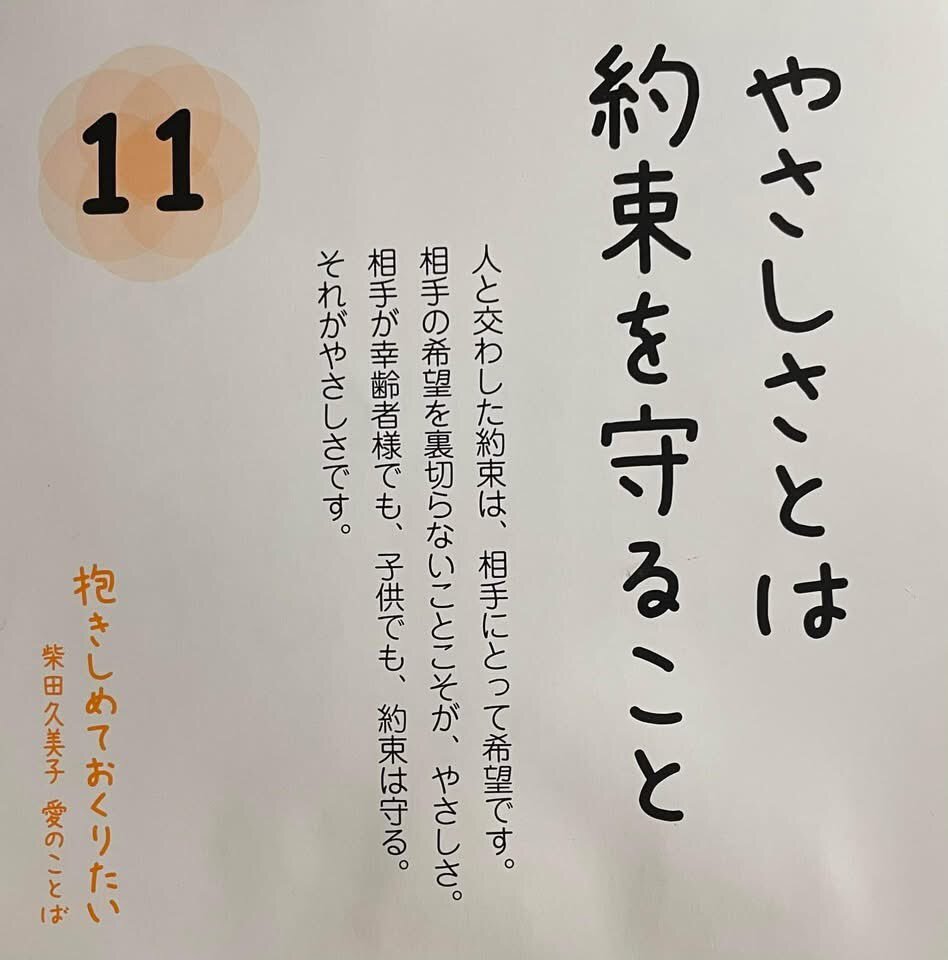 やさしさとは
約束を守ること
人と交わした約束は、相手にとって希望です。
相手の希望を裏切らないことこそが、やさしさ。
相手が幸齢者様でも、子供でも、約束は守る。
それがやさしさです。
11
抱きしめておくりたい
柴田久美子 愛のことば